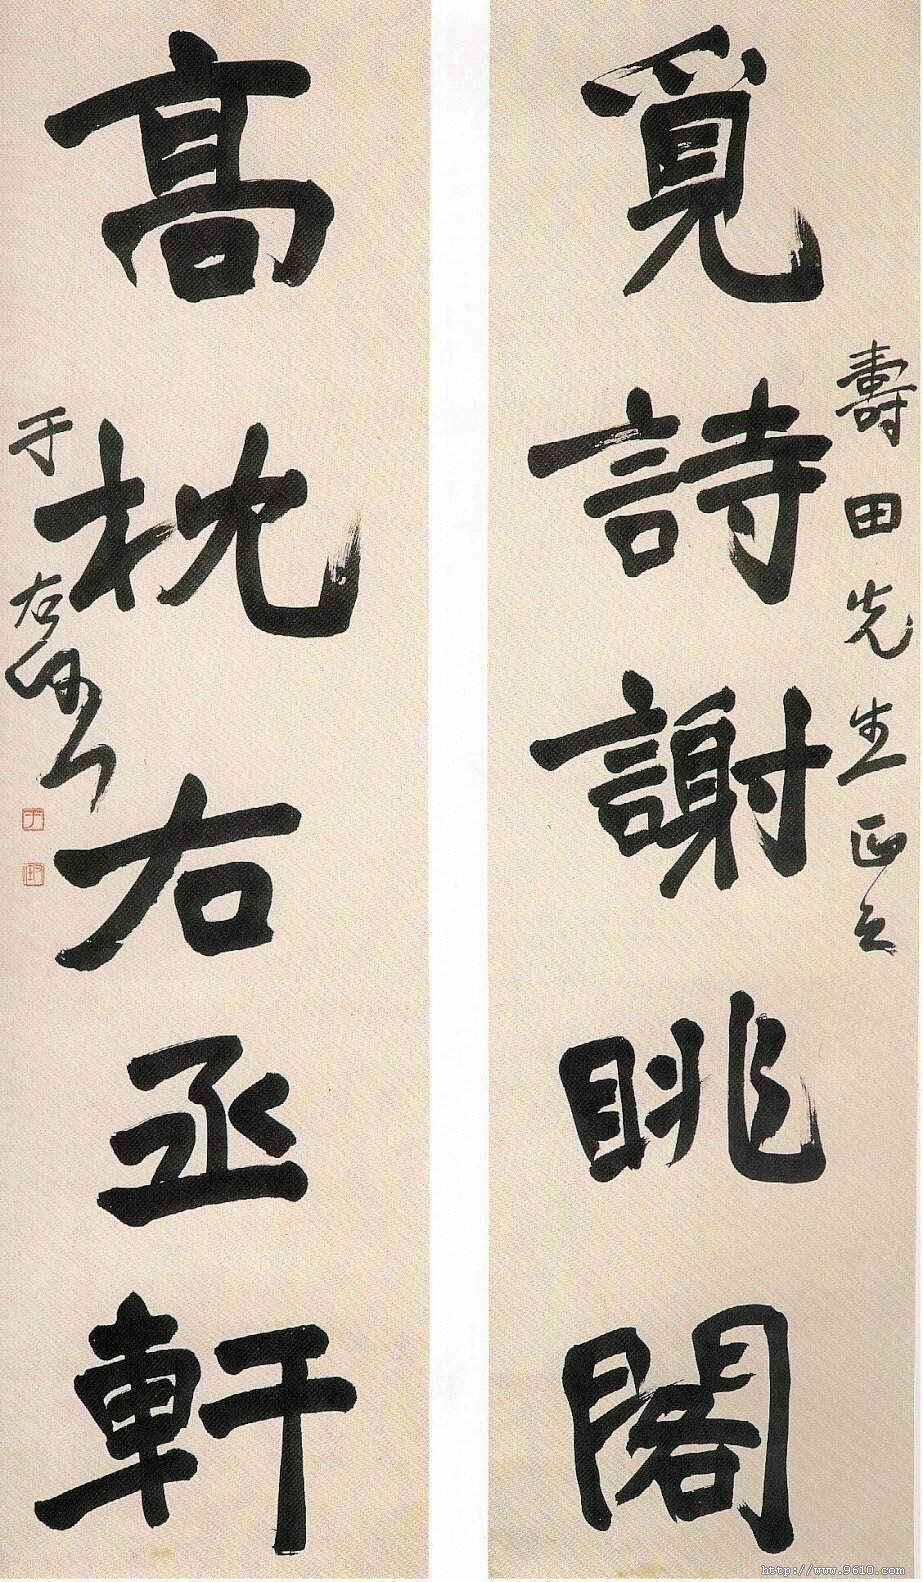 壽田先生正之
覓詩謝眺閣
高枕右丞軒
于右任
http://www.9610.com